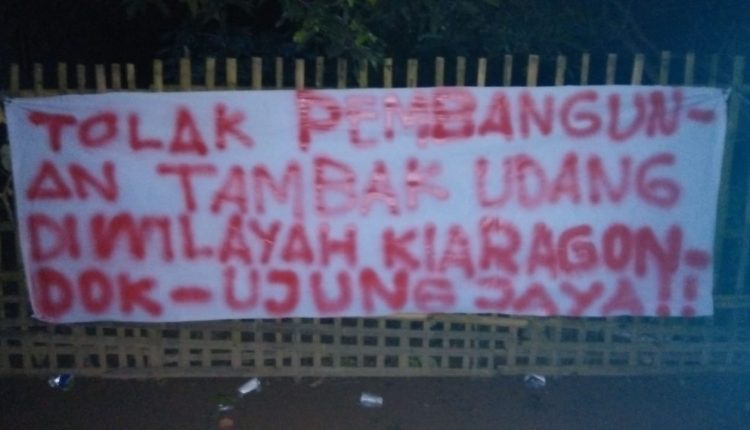 TOLAK PEMBANGUN-
AN TAMBAK UDANG
DIWILAYAH KIARAGON-
DOK-UJUNG JAYA!!